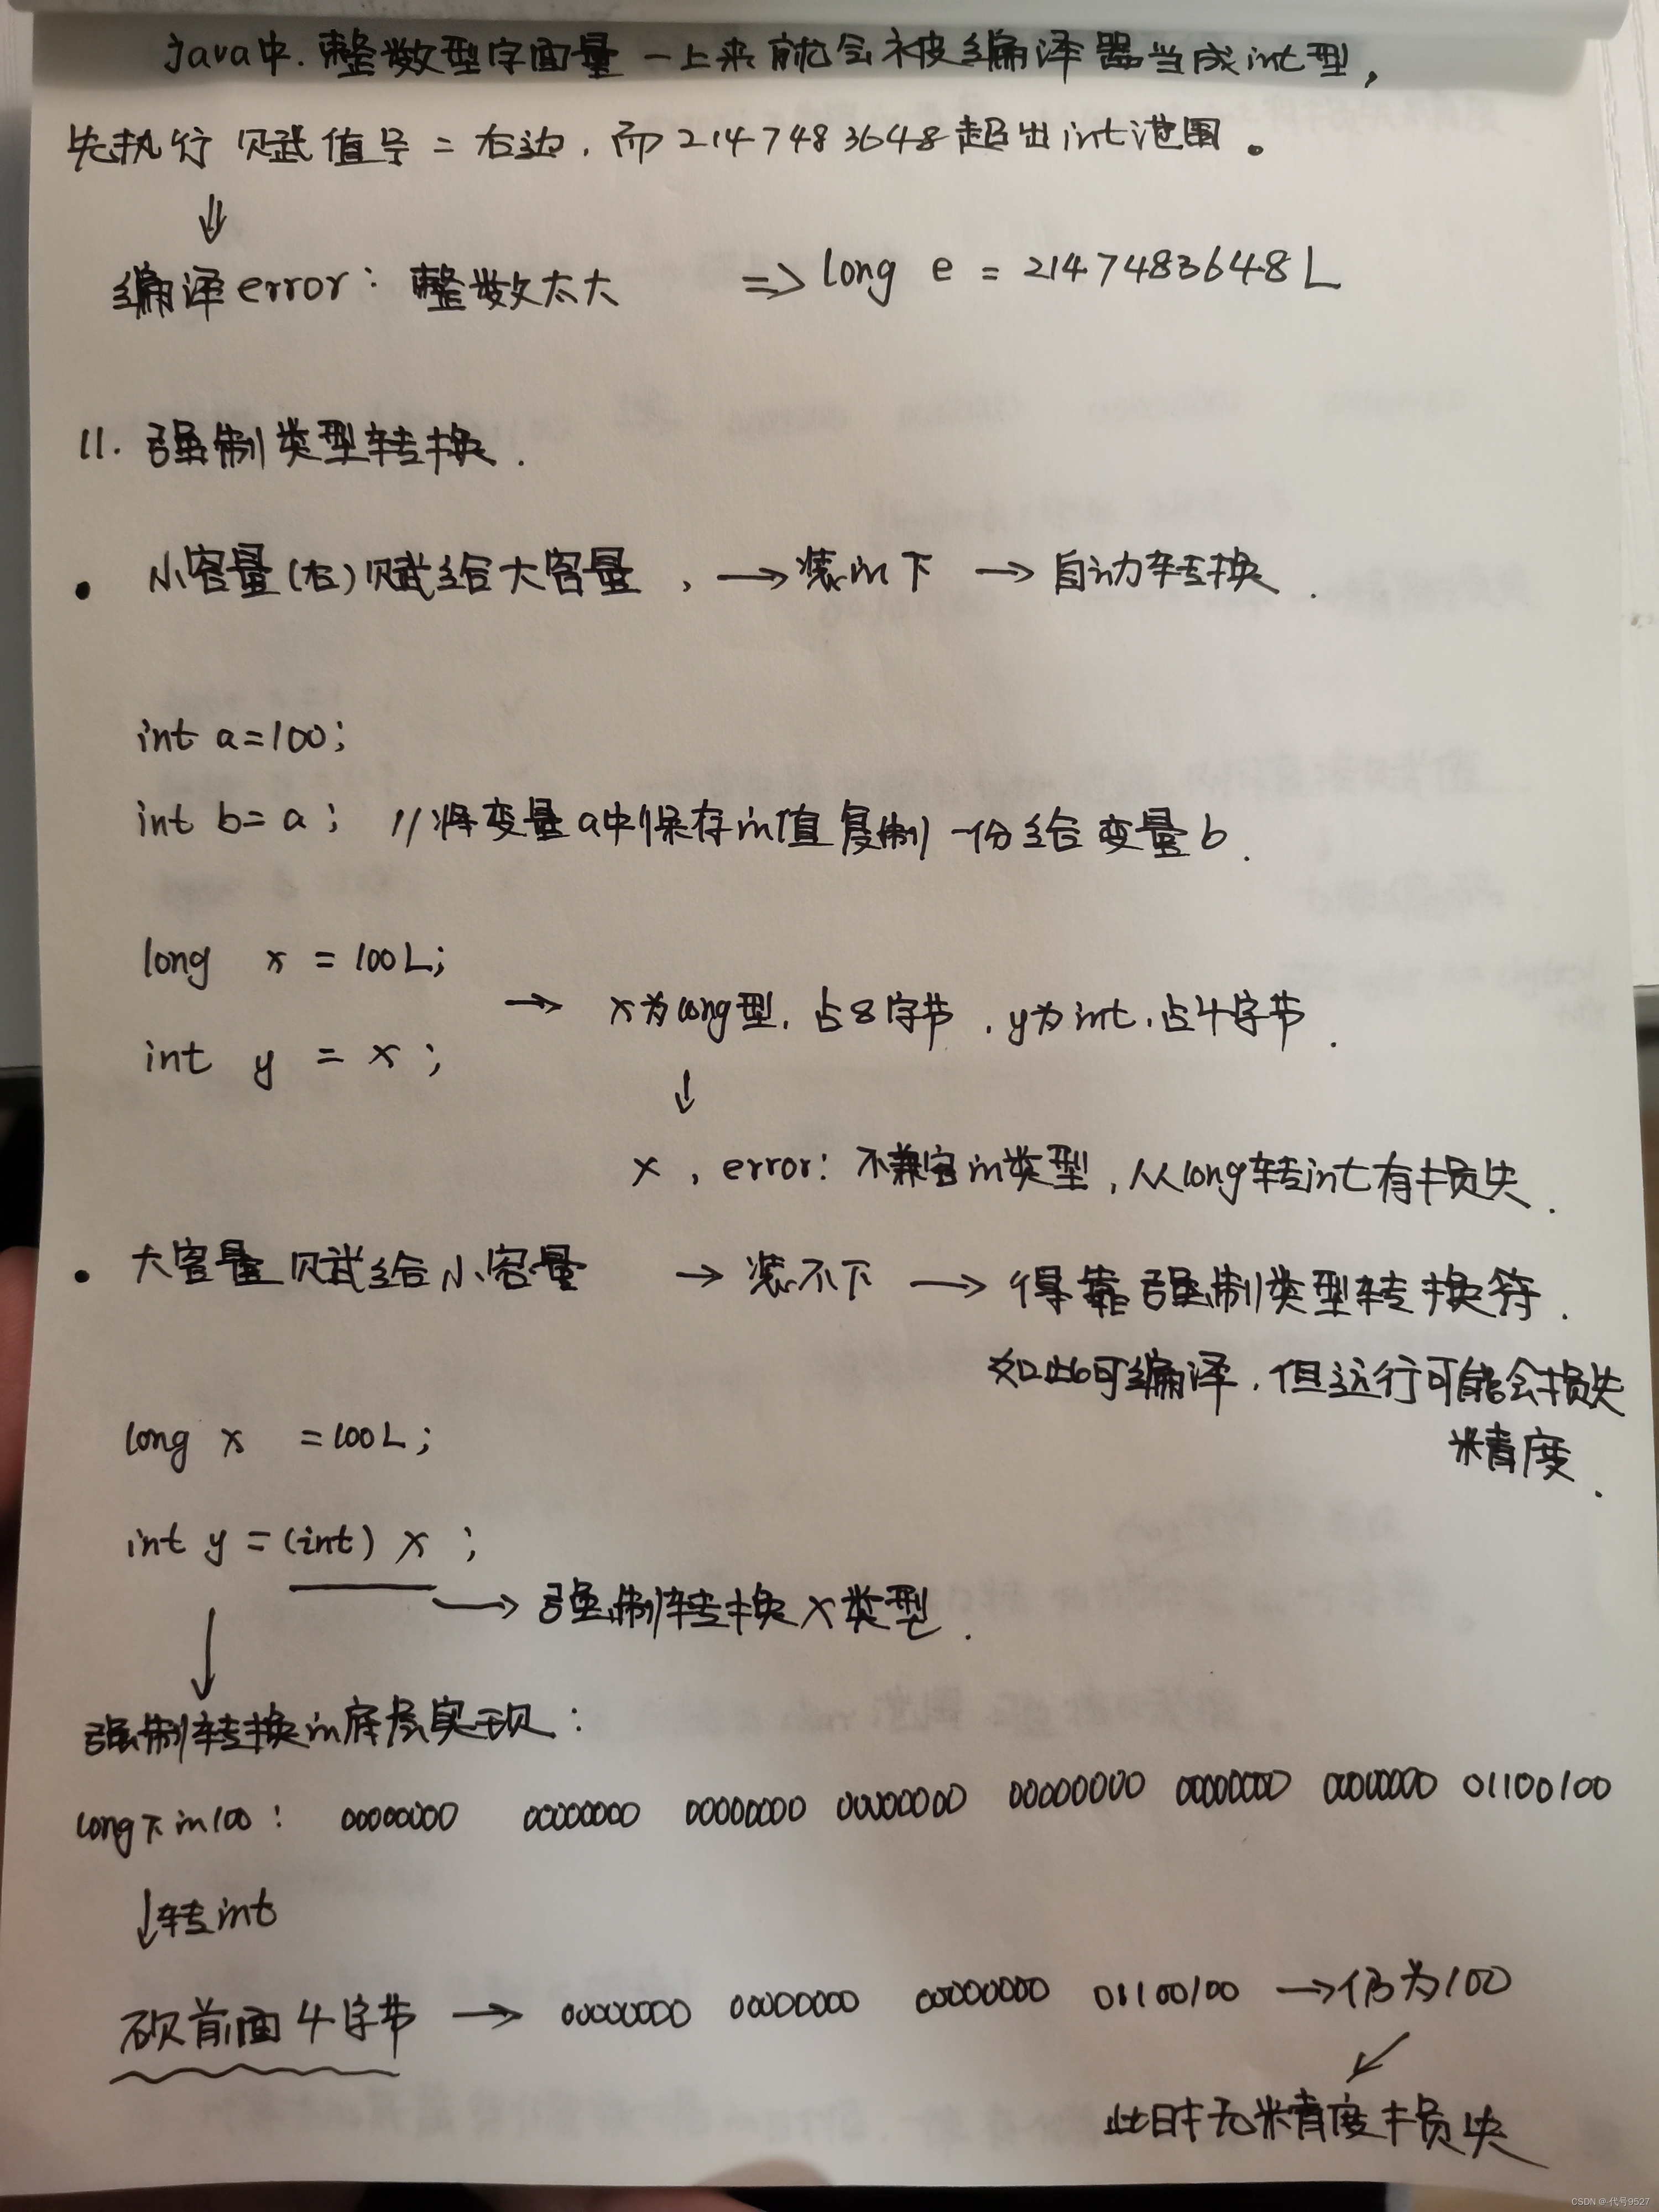 java中.整数型字面量一上来就会被编译器当成int型,
先执行赋值号=右边,而2147483648超出int范围。
⇓
编译error: 整数太大 => long e = 2147483648L
11. 强制类型转换.
• 小容量(右)赋给大容量, → 装的下 → 自动转换.
int a=100;
int b=a; //将变量a中保存的值复制一份给变量b.
long x = 100L;
→ x为long型,占8字节,y为int,占4字节.
int y = x;
↓
x, error: 不兼容的类型,从long转int有损失.
• 大容量赋给小容量 → 装不下 → 得靠强制类型转换符.
如此可编译,但运行可能会损失
精度.
long x =100L;
int y =(int) x ;
→ 强制转换x类型.
↓
强制转换的底层实现:
long下的100: 00000000 00000000 00000000 00000000 00000000 00000000 00000000 01100100
↓转int
砍前面4字节 → 00000000 00000000 00000000 01100100 →仍为100
↙
此时无精度损失
CSDN @-代号9527